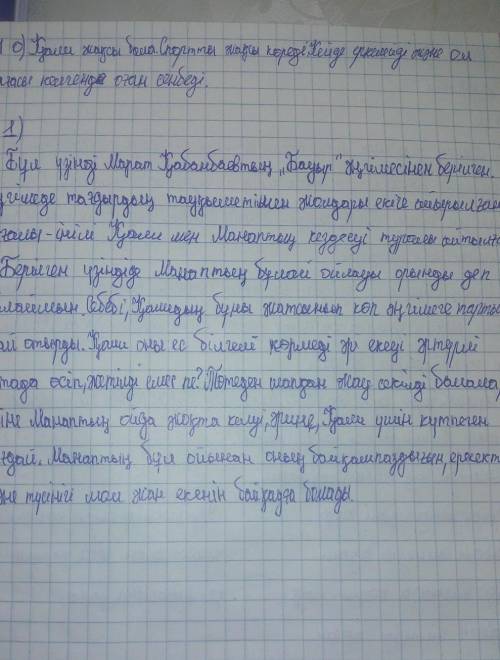 1 0) Қали жақсы бала. Спортты жақсы көреді. Кейде еркелейді және ол
анасы келгенде оған сенбеді.
1)
Бұл үзінді Марат Қабанбаевтың „Бауыр" әңгімесінен берілген.
гімеде тағдырдың тауқыметімен жолдары екіге айырылған
ғалы-інілі Қали мен Манаптың кездесуі туралы айтыл
Берілген үзіндіде Манаптың бұлай ойлауы орынды деп
лаймын. Себебі, Қалидың бұны жатсынып көп әңгімеге тарт
ай отырды. Қали оны ес білгелі көрмеді әрі екеуі әртүрлі
тада өсіп, жетілді емес пе? Төтеден шапқан жау секілді болмаса,
іне Манаптың ойда жоқта келуі, әрине, Қали үшін күтпеген
ғдай. Манаптың бұл ойынан оның байқампаздығын, ересект
не түсінігі мол жан екенін байқауға болады.